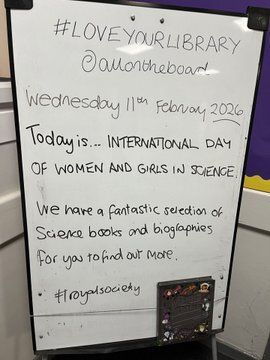 #LOVEYOURLIBRARY
@allontheboard
Wednesday 11th February 2026
Today is... INTERNATIONAL DAY
OF WOMEN AND GIRLS IN SCIENCE.
We have a fantastic selection of
Science books and biographies
for you to find out more.
#royalsociety